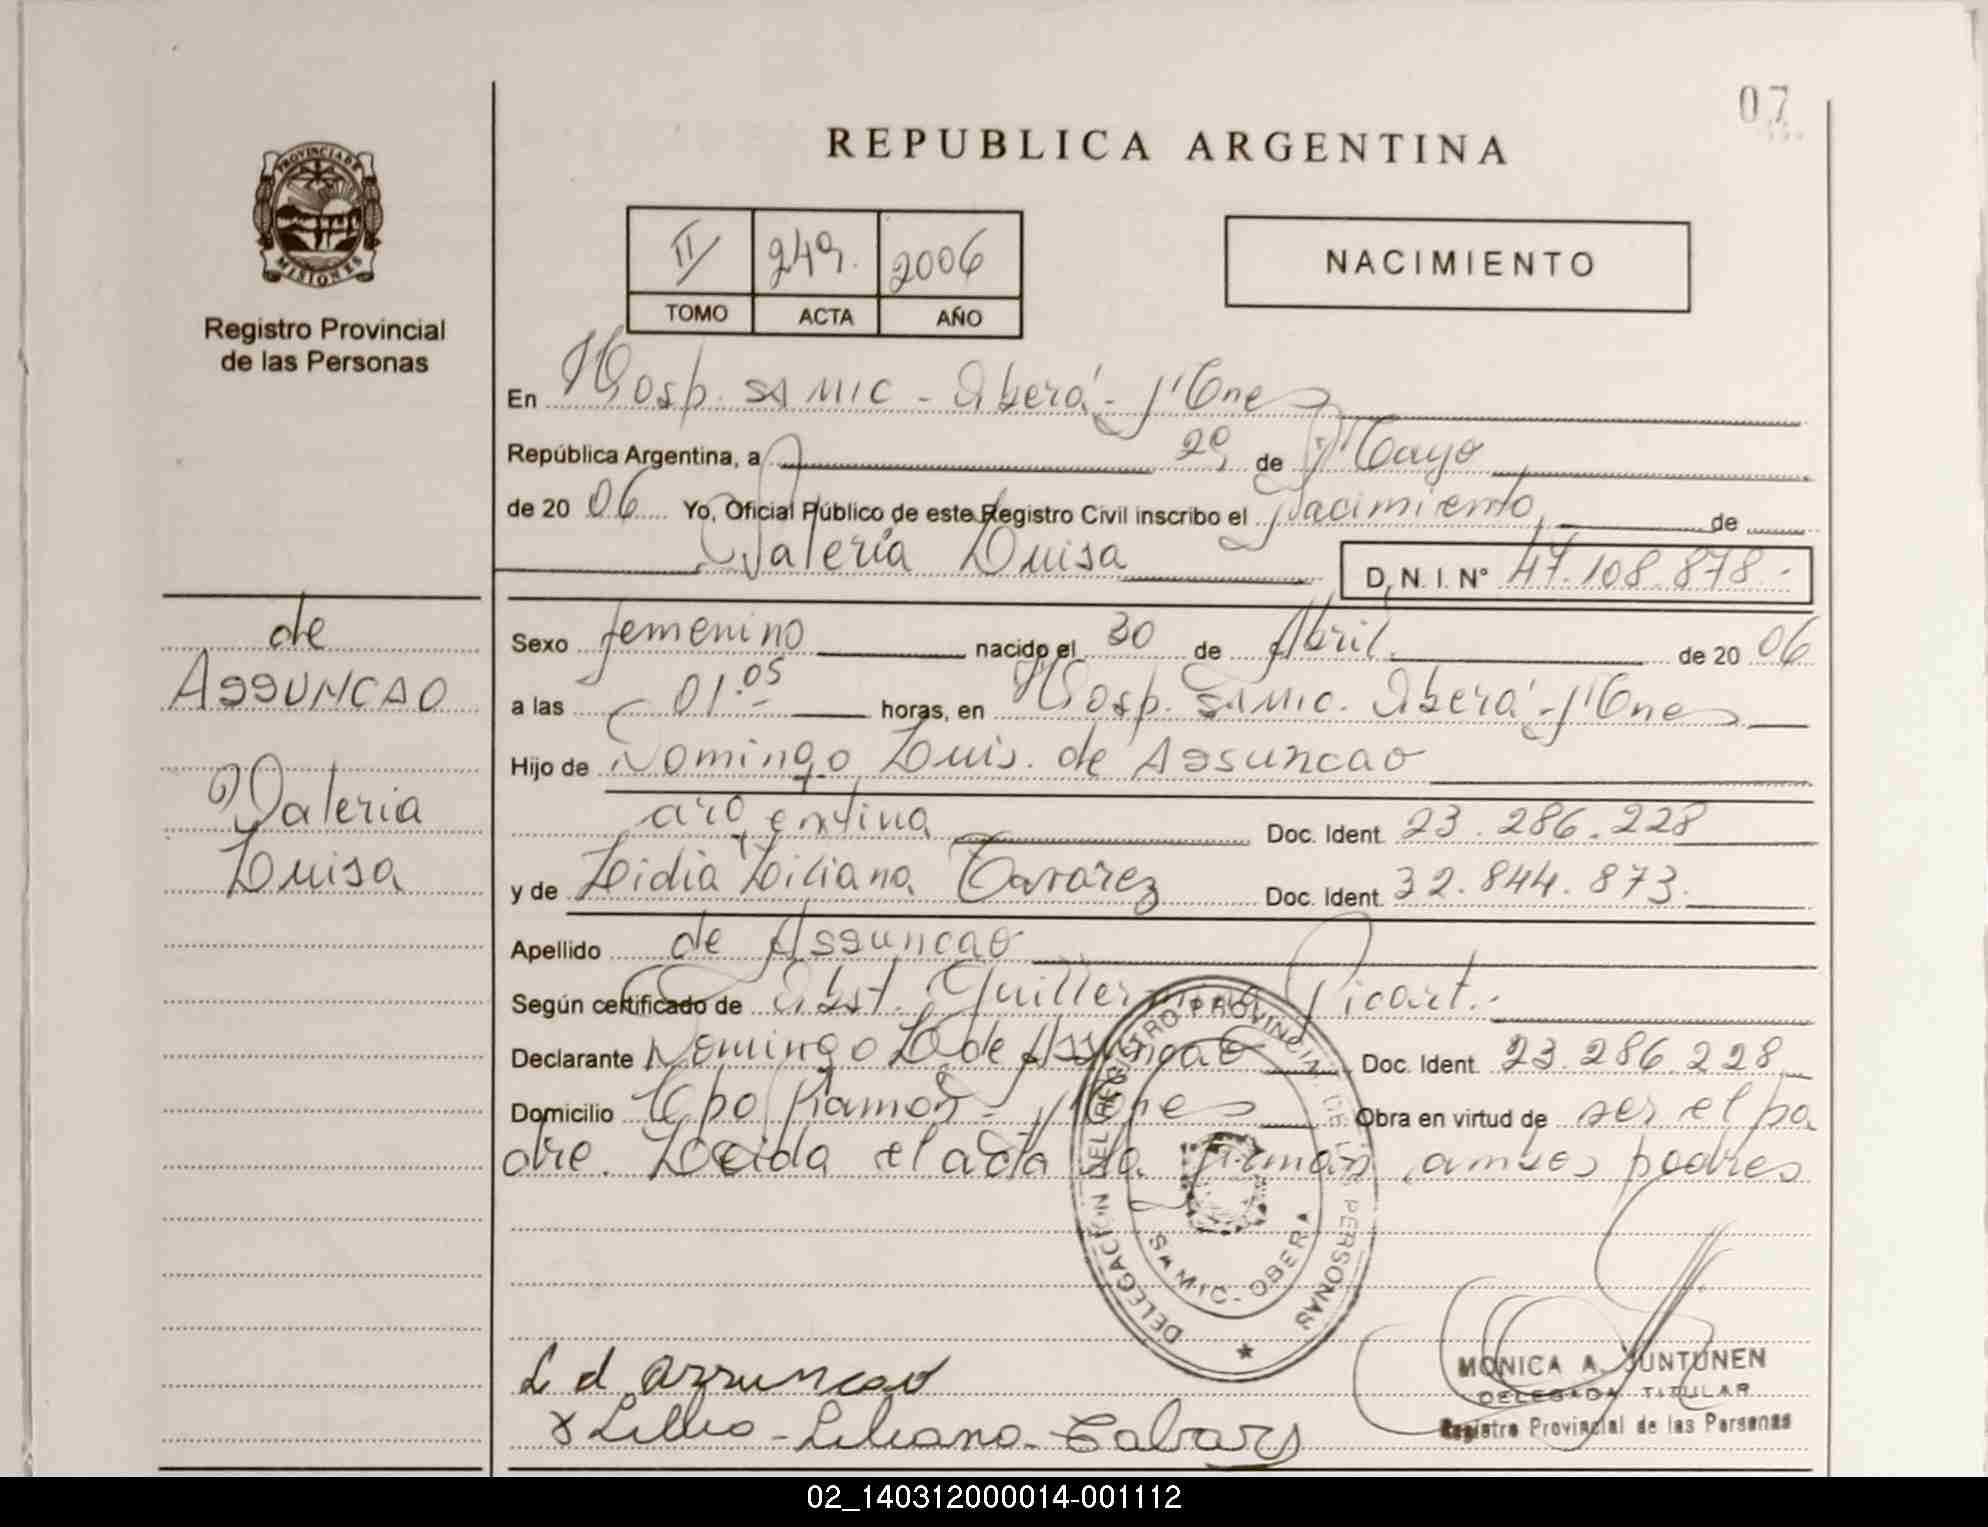 07
REPUBLICA ARGENTINA
PROVINCIA DE MISIONES
Registro Provincial
de las Personas
II 249. 2006
TOMO ACTA AÑO
NACIMIENTO
En Hosp. SAMIC - Oberá - M'ones
República Argentina, a 29 de Mayo
de 2006 Yo, Oficial Público de este Registro Civil inscribo el Nacimiento, de
Valeria Luisa D.N.I. N° 47.108.878.-
de
ASSUNCAO
Valeria
Luisa
Sexo femenino nacido el 30 de Abril de 2006
a las 01.05 horas, en Hosp. SAMIC. Oberá - M'ones
Hijo de Domingo Luis de Assuncao
argentina Doc. Ident. 23.286.228
y de Lidia Liliana Tavarez Doc. Ident. 32.844.873.
Apellido de Assuncao
Según certificado de Obst. Guillermina Picart.-
Declarante Domingo L. de Assuncao Doc. Ident. 23.286.228
Domicilio Cpo Ramón - M'ones Obra en virtud de ser el pa
dre. Leida el acta la firman ambos padres
DELEGACIÓN DEL REGISTRO PROVINCIAL DE LAS PERSONAS
SAMIC - OBERA
L d Assuncao
Liliana
MONICA A. JUNTUNEN
DELEGADA TITULAR
Registro Provincial de las Personas
02_140312000014-001112